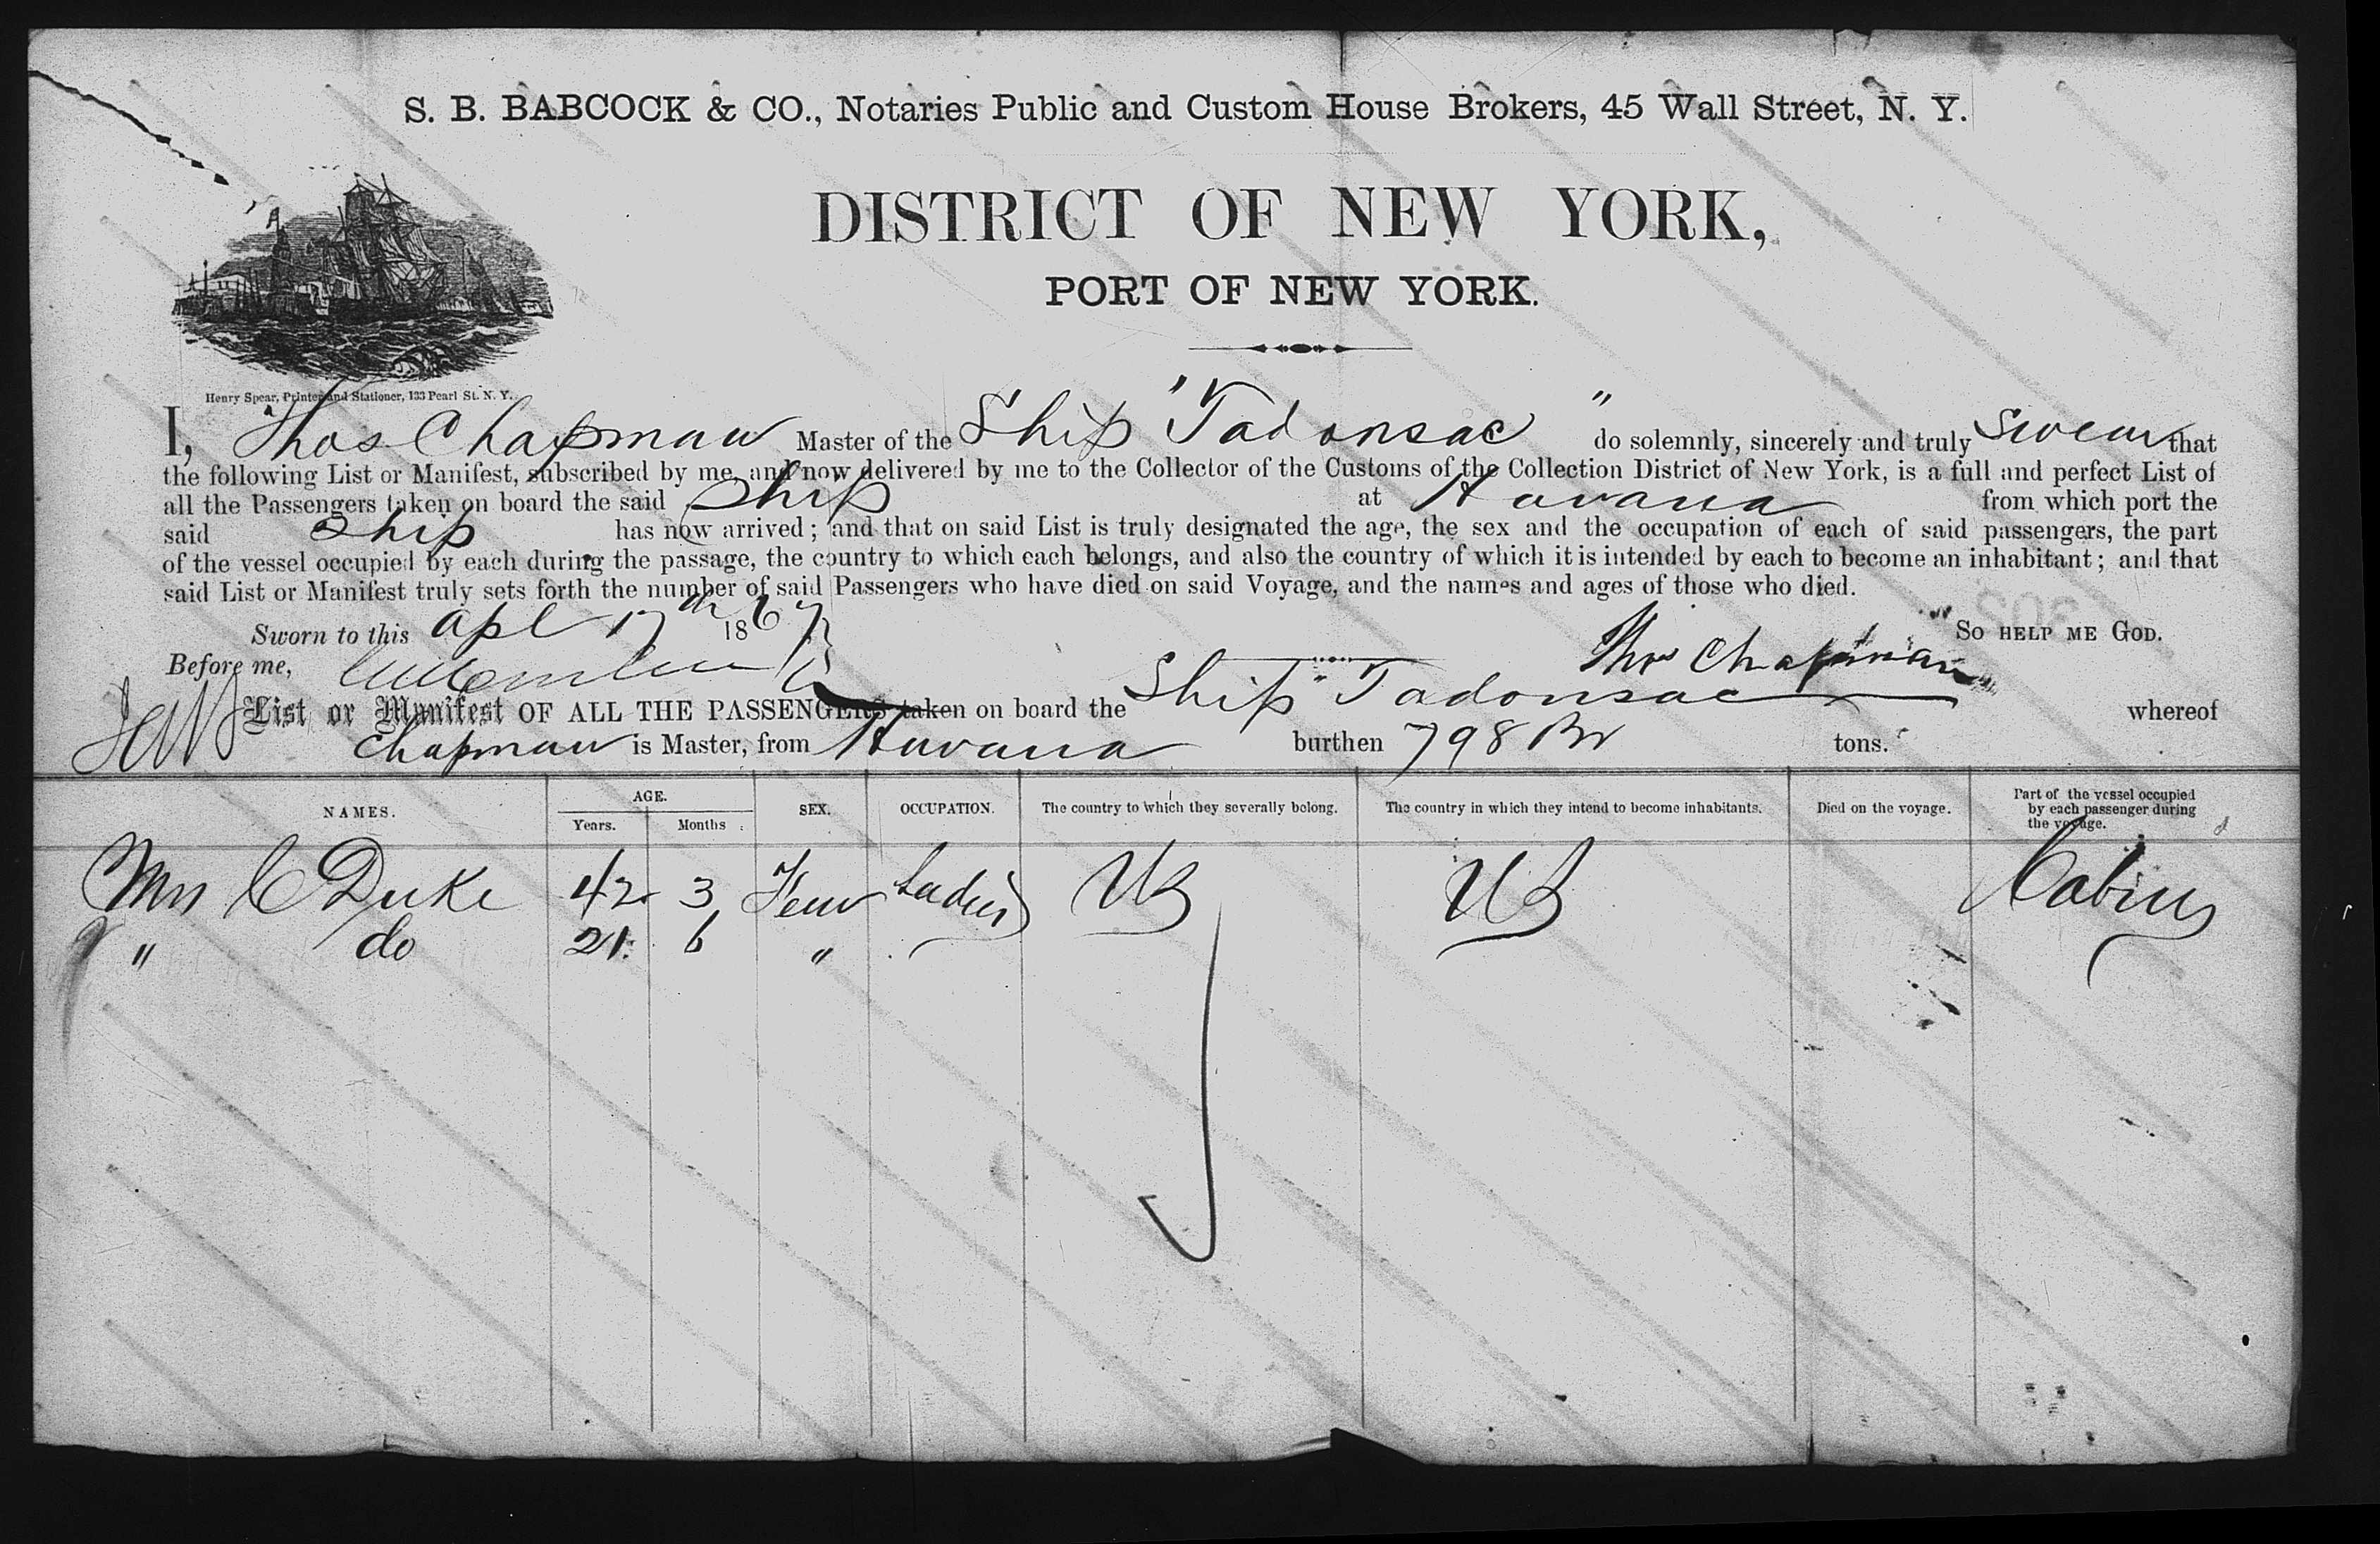 S. B. BABCOCK & CO., Notaries Public and Custom House Brokers, 45 Wall Street, N. Y.
DISTRICT OF NEW YORK,
PORT OF NEW YORK.
Henry Spear, Printer and Stationer, 133 Pearl St. N. Y.
I, Thos Chapman Master of the Ship "Tadonsac" do solemnly, sincerely and truly Swear that
the following List or Manifest, subscribed by me, and now delivered by me to the Collector of the Customs of the Collection District of New York, is a full and perfect List of
all the Passengers taken on board the said Ship at Havana from which port the
said Ship has now arrived; and that on said List is truly designated the age, the sex and the occupation of each of said passengers, the part
of the vessel occupied by each during the passage, the country to which each belongs, and also the country of which it is intended by each to become an inhabitant; and that
said List or Manifest truly sets forth the number of said Passengers who have died on said Voyage, and the names and ages of those who died.
Sworn to this Apl 17th 1867 SO HELP ME GOD.
Before me, Thos Chapman
List or Manifest OF ALL THE PASSENGERS taken on board the Ship "Tadonsac whereof
Chapman is Master, from Havana burthen 798 Br tons.
NAMES. AGE. Years. Months SEX. OCCUPATION. The country to which they severally belong. The country in which they intend to become inhabitants. Died on the voyage. Part of the vessel occupied by each passenger during the voyage.
Mrs C Duke 42 3 Fem Ladies US US Cabin
" do 21 6 "